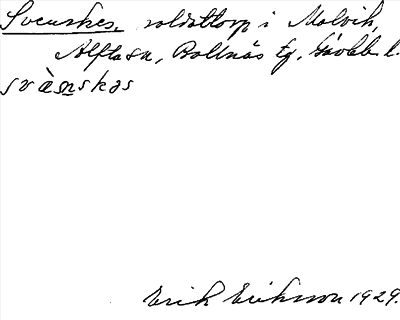 Svenskes, soldattorp i Malvik,
Alfta sn, Bollnäs tg, Gävleb. l.
svä̀nskəs
Erik Eriksson 1929.